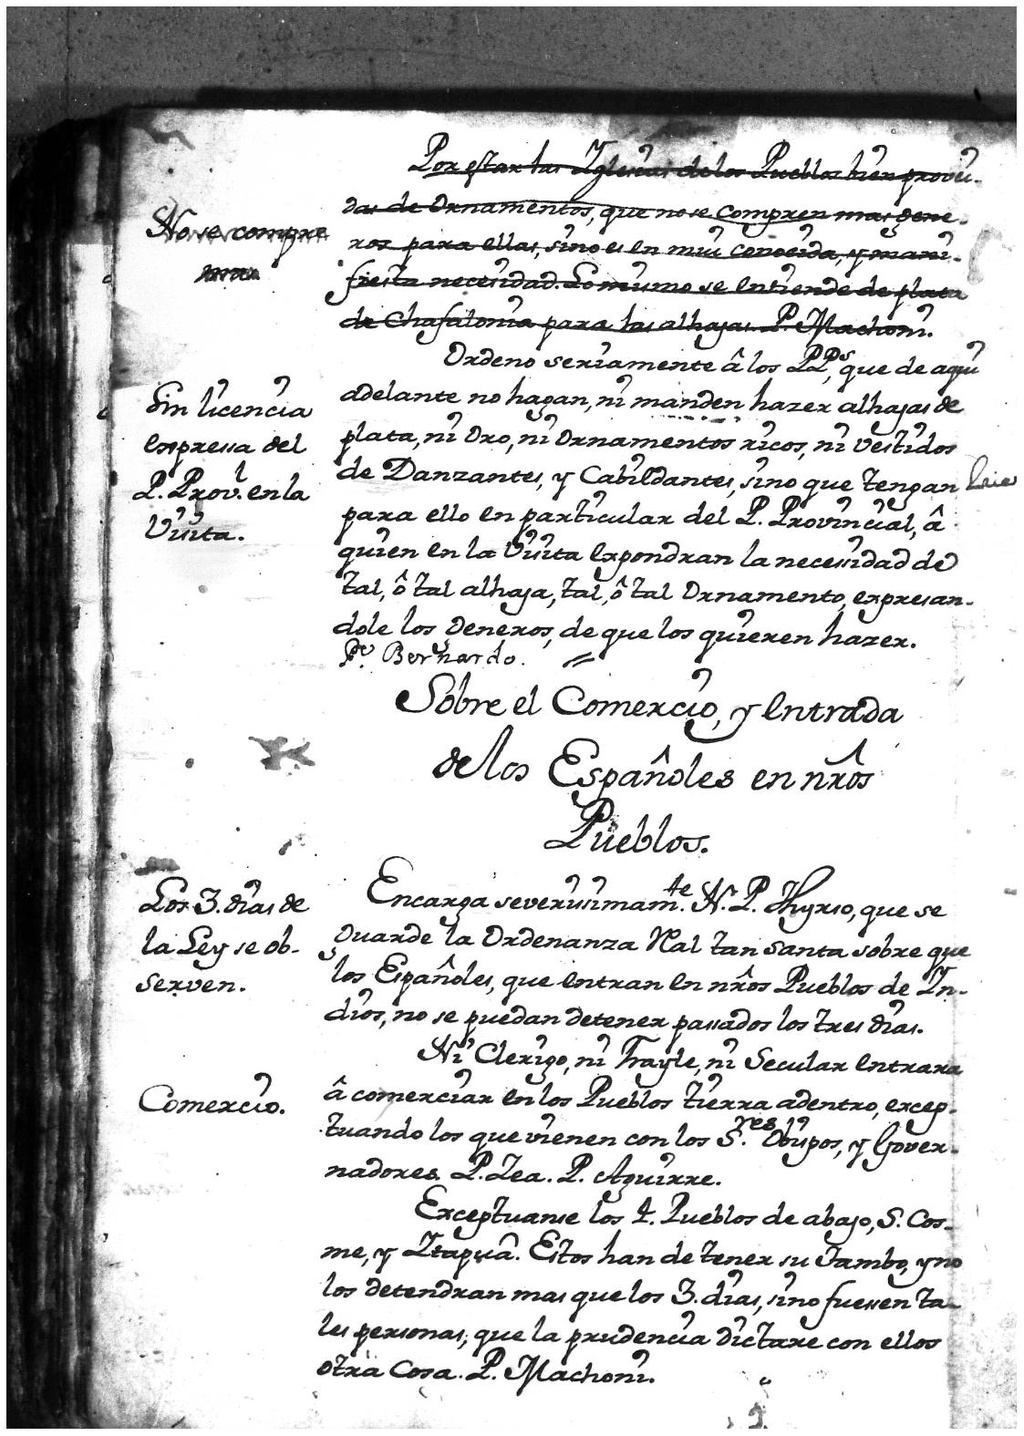 Por estar las Yglesias de los Pueblos bien provei-
das de Ornamentos, que no se compren mas gene-
No se compre
ros para ellas, sino es en mui conocida, y mani-
fiesta necesidad. Lo mismo se entiende de plata
de Chafalonia para las alhajas. P. Machoni.
Ordeno seriamente â los PP.ˢ, que de aqui
Sin licencia
adelante no hagan, ni manden hazer alhajas de
expressa del
plata, ni Oro, ni Ornamentos ricos, ni Vestidos
P. Prov.ˡ en la
de Danzantes, y Cabildantes, sino que tengan
Visita.
para ello en particular del P. Provincial, â
quien en la Visita expondran la necessidad de
tal, ô tal alhaja, tal, ô tal Ornamento, expresan-
dole los Generos, de que los quieren hazer.
Pᵉ. Bernardo.
Sobre el Comercio, y entrada
de los Españoles en nr̂os
Pueblos.
Los 3. dias de
la Ley se ob-
serven.
Encarga severissimam.ᵗᵉ N. P. Thyrso, que se
Guarde la Ordenanza Rˡal tan santa sobre que
los Españoles, que entran en nr̂os Pueblos de In-
dios, no se puedan detener passados los tres dias.
Comercio.
Ni Clerigo, ni Frayle, ni Secular entrara
â comerciar en los Pueblos tierra adentro, excep-
tuando los que vienen con los S.ʳᵉˢ Obispos, y Gover-
nadores. P. Zea. P. Aguirre.
Exceptuanse los 4. Pueblos de abajo, S. Cos-
me, y Itapuâ. Estos han de tener su Tambo, y no
los detendran mas que los 3. dias, sino fuessen ta-
les personas, que la prudencia dictare con ellos
otra Cosa. P. Machoni.